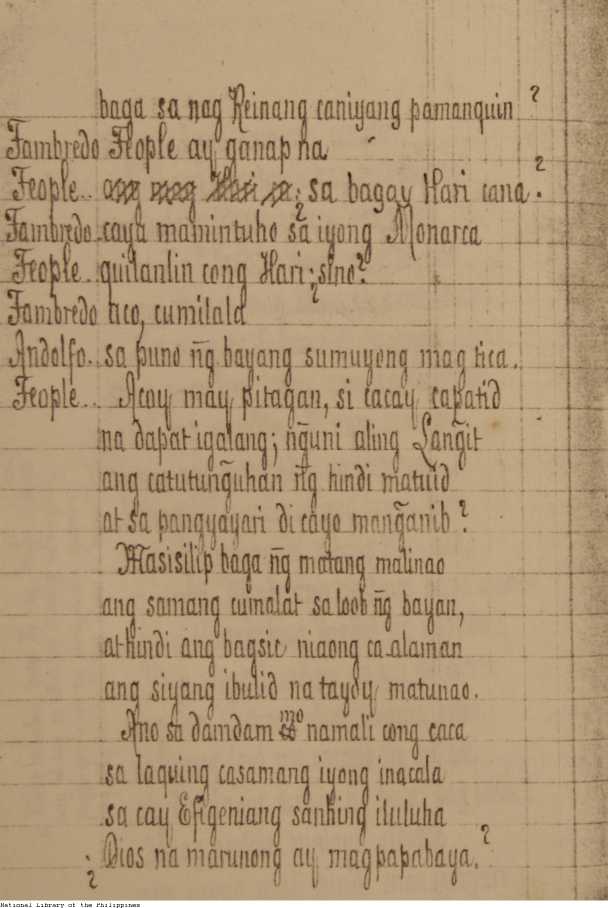 baga sa nag Reinang caniyang pamanquin?
Fambredo Feople ay ganap na
Feople.. sa bagay Hari cana?
Fambredo. caya mamintuho sa iyong Monarca
Feople.. quilanlin cong Hari; ¿sino?
Fambredo tico, cumilala
Andolfo. sa puno ñg bayang sumuyong mag tica.
Feople... Acoy may pitagan, si cacay capatid
na dapat igalang; ñguni aling Langit
ang catutunguhan ñg hindi matuid
at sa pangyayari di cayo manganib?
Masisilip baga ñg matang malinao
ang samang cumalat sa loob ñg bayan,
at hindi ang bagsic niaong ca-alaman
ang siyang ibulid na tayoy matunao.
Ano sa damdam mo namali cong caca
sa laquing casamang iyong inacala
sa cay Efigeniang sanhing iluluha
¿Dios na marunong ay magpapabaya?
National Library of the Philippines